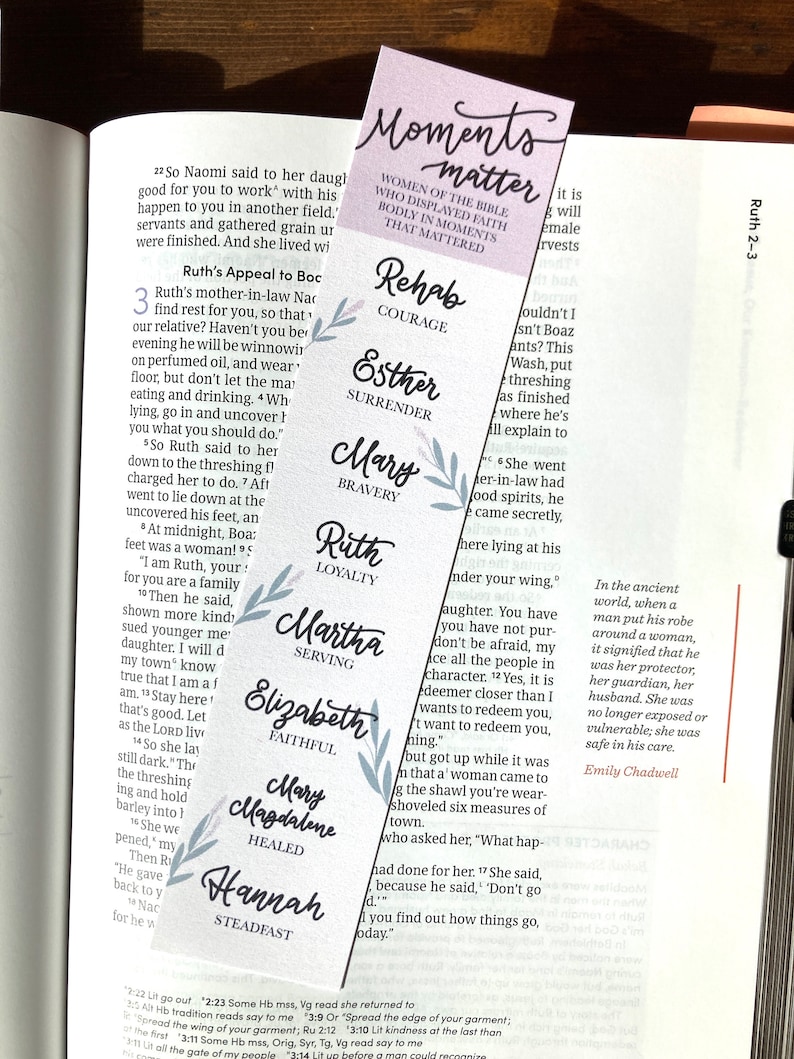 Moments
matter
WOMEN OF THE BIBLE
WHO DISPLAYED FAITH
BODLY IN MOMENTS
THAT MATTERED
Rehab
COURAGE
Esther
SURRENDER
Mary
BRAVERY
Ruth
LOYALTY
Martha
SERVING
Elizabeth
FAITHFUL
Mary
Magdalene
HEALED
Hannah
STEADFAST
22 So Naomi said to her
good for you to work^A with his
happen to you in another field."
servants and gathered grain
were finished. And she lived
Ruth's Appeal to
3 Ruth's mother-in-law
find rest for you, so that
our relative? Haven't you
evening he will be
on perfumed oil, and wear
floor, but don't let the
eating and drinking. 4
lying, go in and uncover
you what you should do."
5 So Ruth said to her
down to the threshing
charged her to do. 7
went to lie down at the
uncovered his feet,
8 At midnight, Boaz
feet was a woman! 9
"I am Ruth, your
for you are a family
10 Then he said,
shown more
sued younger
daughter. I will
my town^G know
true that I am a
am. 13 Stay here
that's good. Let
as the LORD
14 So she lay
still dark." Then
the threshing
ing and hold
barley into
16 She
pened,^K my
Then
"He gave
back to
18
for he
it is
will
ouldn't I
Boaz
This
Wash, put
threshing
finished
where he's
explain to
6 She went
had
good spirits, he
came secretly,
here lying at his
under your wing,^D
You have
you have not pur-
don't be afraid, my
all the people in
character. 12 Yes, it is
redeemer closer than I
wants to redeem you,
want to redeem you,
but got up while it was
that a^I woman came to
the shawl you're wear-
shoveled six measures of
town.
who asked her, "What hap-
had done for her. 17 She said,
because he said,^L 'Don't go
you find out how things go,
Ruth 2–3
In the ancient
world, when a
man put his robe
around a woman,
it signified that he
was her protector,
her guardian, her
husband. She was
no longer exposed or
vulnerable; she was
safe in his care.
Emily Chadwell
2:22 Lit go out 2:23 Some Hb mss, Vg read she returned to
3:5 Alt Hb tradition reads say to me 3:9 Or "Spread the edge of your garment;
"Spread the wing of your garment; Ru 2:12 3:10 Lit kindness at the last than
at the first 3:11 Some Hb mss, Orig, Syr, Tg, Vg read say to me
3:11 Lit all the gate of my people 3:14 Lit up before a man could recognize